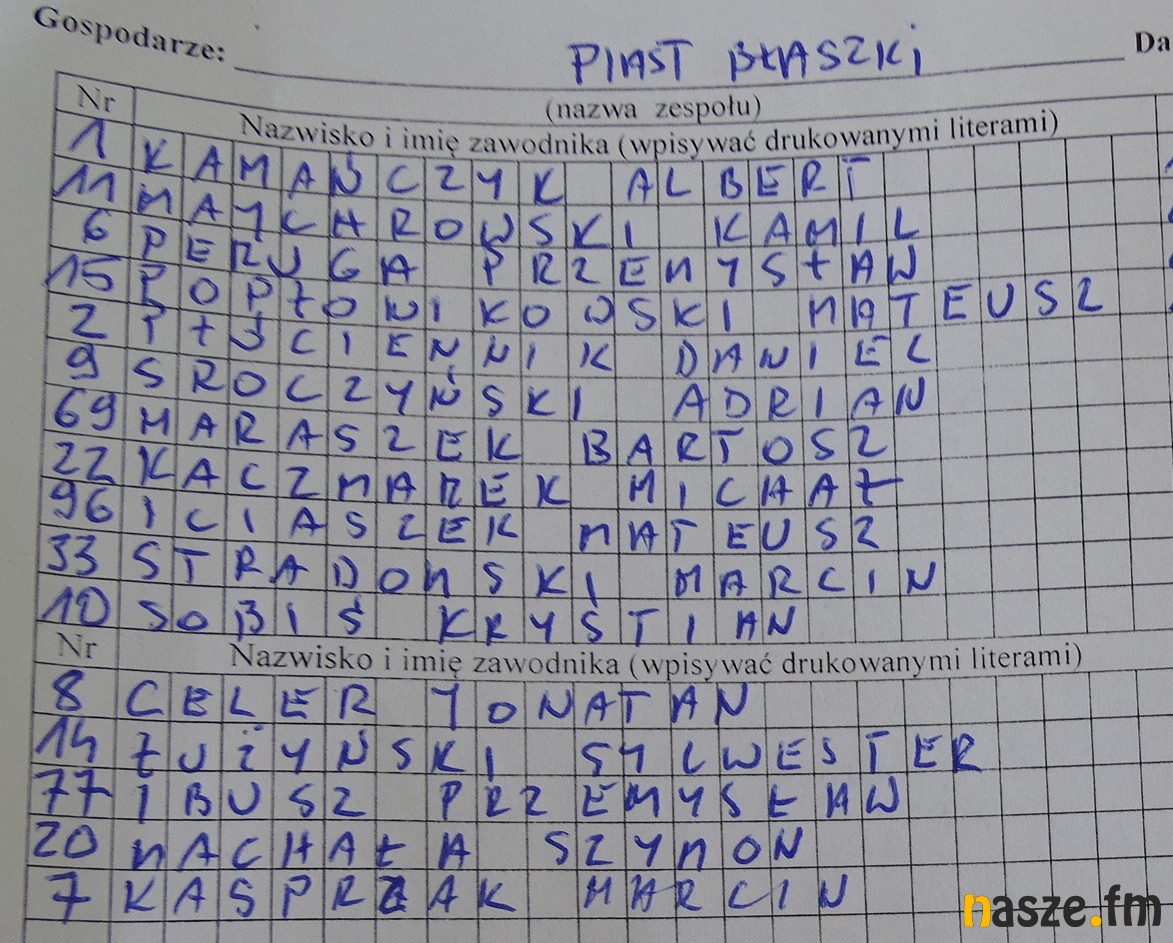 Gospodarze: PIAST BŁASZKI Da
(nazwa zespołu)
Nr Nazwisko i imię zawodnika (wpisywać drukowanymi literami)
1 KAMAŃCZYK ALBERT
11 MAYCHROWSKI KAMIL
6 PERUGA PRZEMYSŁAW
15 POPŁONIKOWSKI MATEUSZ
2 PŁUCIENNIK DANIEL
9 SROCZYŃSKI ADRIAN
69 MARASZEK BARTOSZ
22 KACZMAREK MICHAŁ
96 ICIASZEK MATEUSZ
33 STRADOMSKI MARCIN
10 SOBIŚ KRYSTIAN
Nr Nazwisko i imię zawodnika (wpisywać drukowanymi literami)
8 CELER JONATAN
14 ŁUŻYŃSKI SYLWESTER
77 IBUSZ PRZEMYSŁAW
20 MACHAŁA SZYMON
7 KASPRZAK MARCIN
nasze.fm